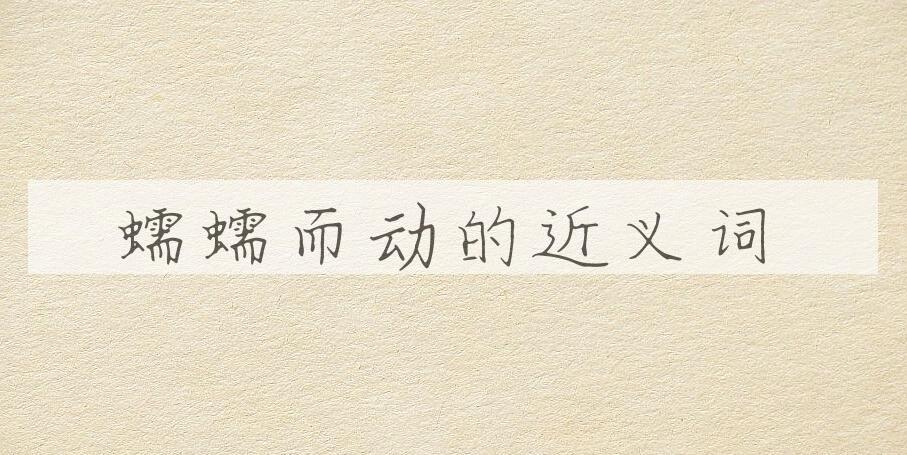 蠕蠕而动的近义词